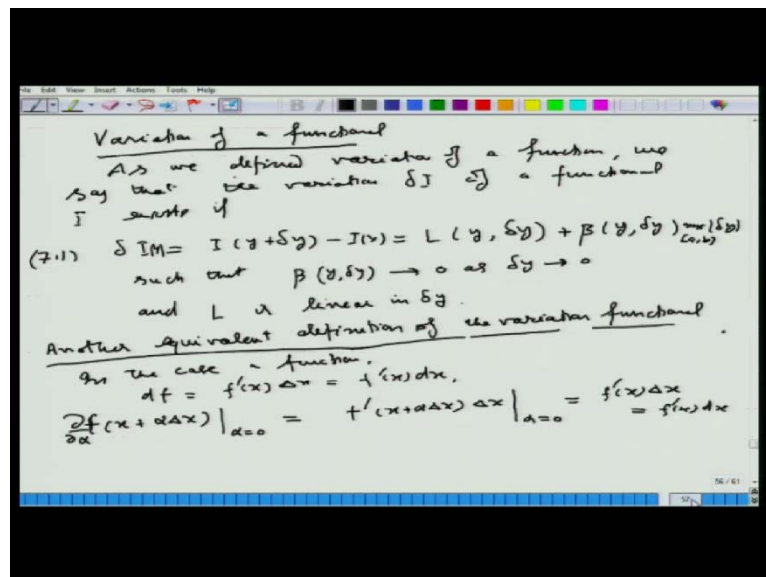 Edit View Insert Actions Tools Help
Variation of a functional
As we defined variation of a function, we
say that the variation δI of a functional
I exists if
(7.1) δ I(y) = I(y+δy) - I(y) = L(y, δy) + β(y, δy) max |δy|
[a,b]
such that β(y,δy) → 0 as δy → 0
and L is linear in δy.
Another equivalent definition of the variation functional.
In the case a function,
df = f'(x) Δx = f'(x) dx,
∂f/∂α (x + αΔx) |α=0 = f'(x+αΔx) Δx |α=0 = f'(x) Δx
= f'(x) dx
56 / 61
57